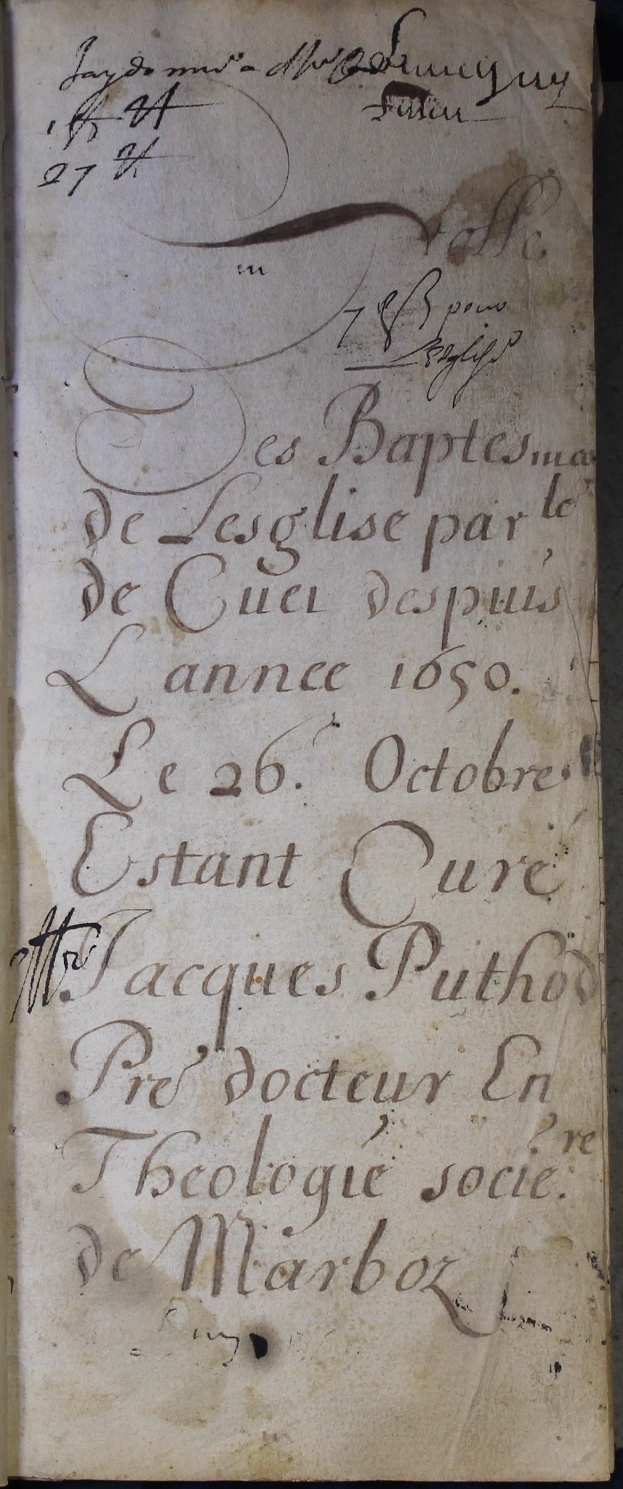 Jay donné a Mr
27 ₶
7 pour
Lesglise
Des Baptesmes
de Lesglise par.le
de Cuei despuis
L annee 1650.
Le 26. Octobre
Estant Curé
Mre Jacques Puthod
Pre docteur En
Theologie socie.re
de Marboz